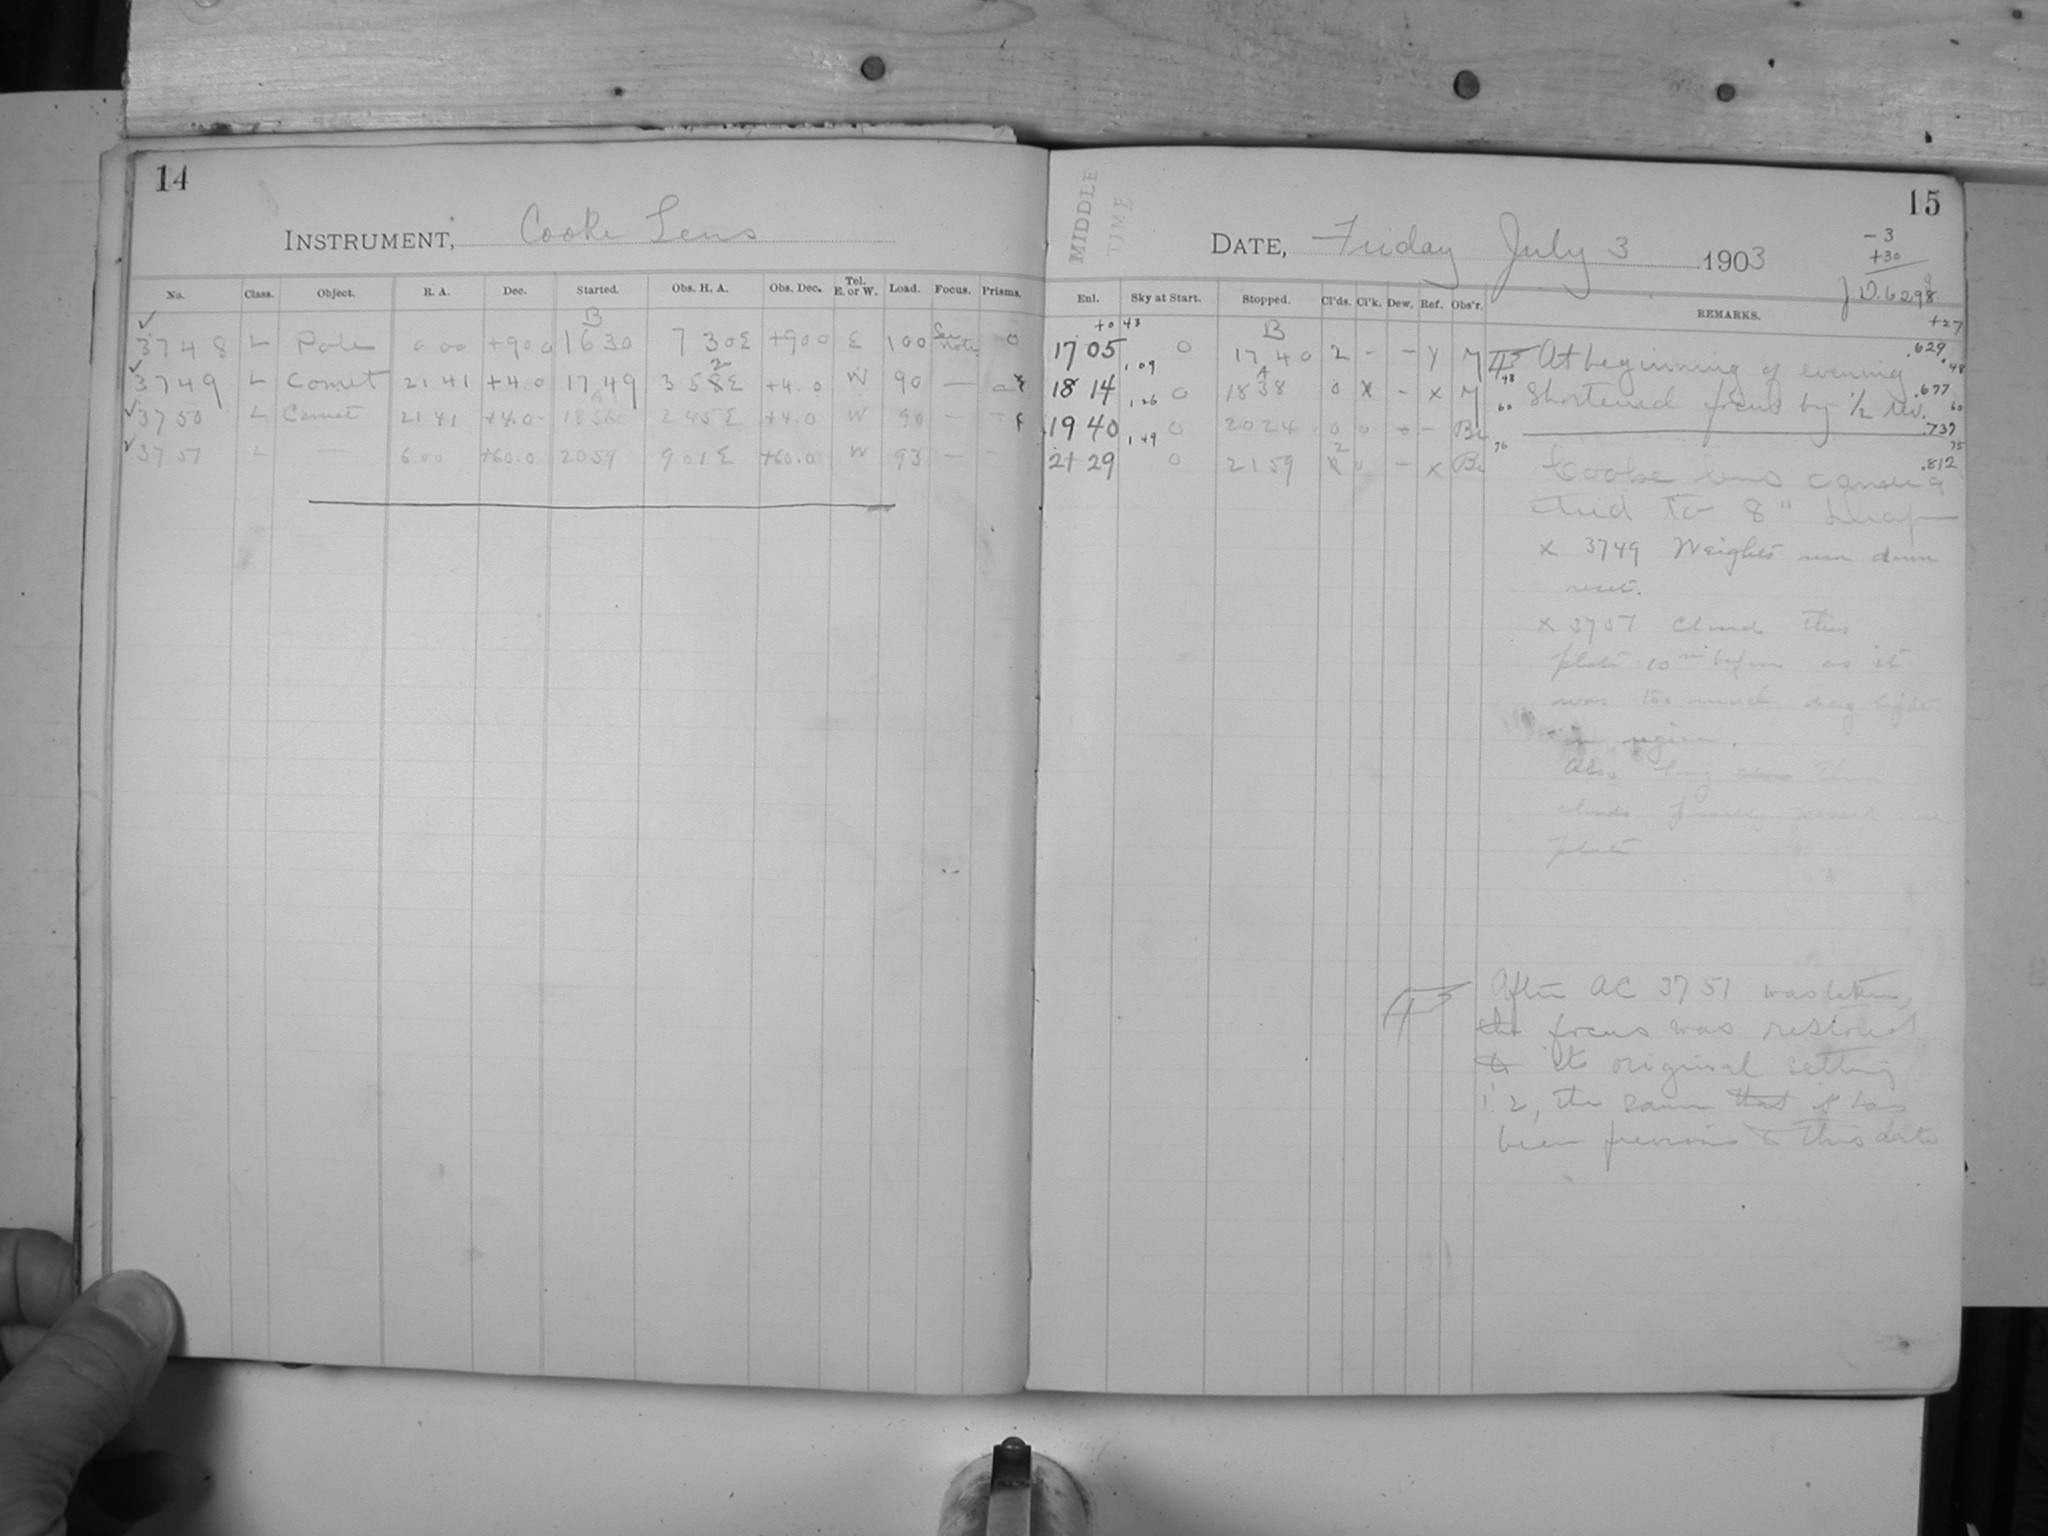 14
INSTRUMENT, Cooke Lens
No. Class. Object. R. A. Dec. Started. Obs. H. A. Obs. Dec. Tel. E. or W. Load. Focus. Prisms.
B
3748 L Pole 0 00 +90 0 1630 7 30 E +90 0 E 100 See note 0
2
3749 L Comet 21 41 +4.0 1749 3 58 E +4.0 W 90 —
3750 L Comet 21 41 +4.0 1856 2 45 E +4.0 W 90 —
3751 L — 6 00 +60.0 2059 9 01 E +60.0 W 93 — -
MIDDLE
TIME
15
DATE, Friday July 3 1903
- 3
+30
J.D. 6298
Enl. Sky at Start. Stopped. Cl'ds. Cl'k. Dew. Ref. Obs'r. REMARKS.
+0 43 B +27
17 05 0 1740 2 - - Y M At beginning of evening .629
1.09 A 48 .48
18 14 0 1838 0 x - x M Shortened focus by ½ rev. .677
1.26 60 60
19 40 0 2024 0 0 - Be .737
1.49 2 76 75
21 29 0 2159 0 - x Be Cooke lens camera .812
tied to 8"
x 3749 Weights run down
reset.
x 3751 Closed this
plate 10 min before as it
was too much day light
in region.
Also thin
clouds possibly passed over
plate
After AC 3751 was taken,
the focus was restored
to its original setting
i.e, the same that it has
been previous to this date